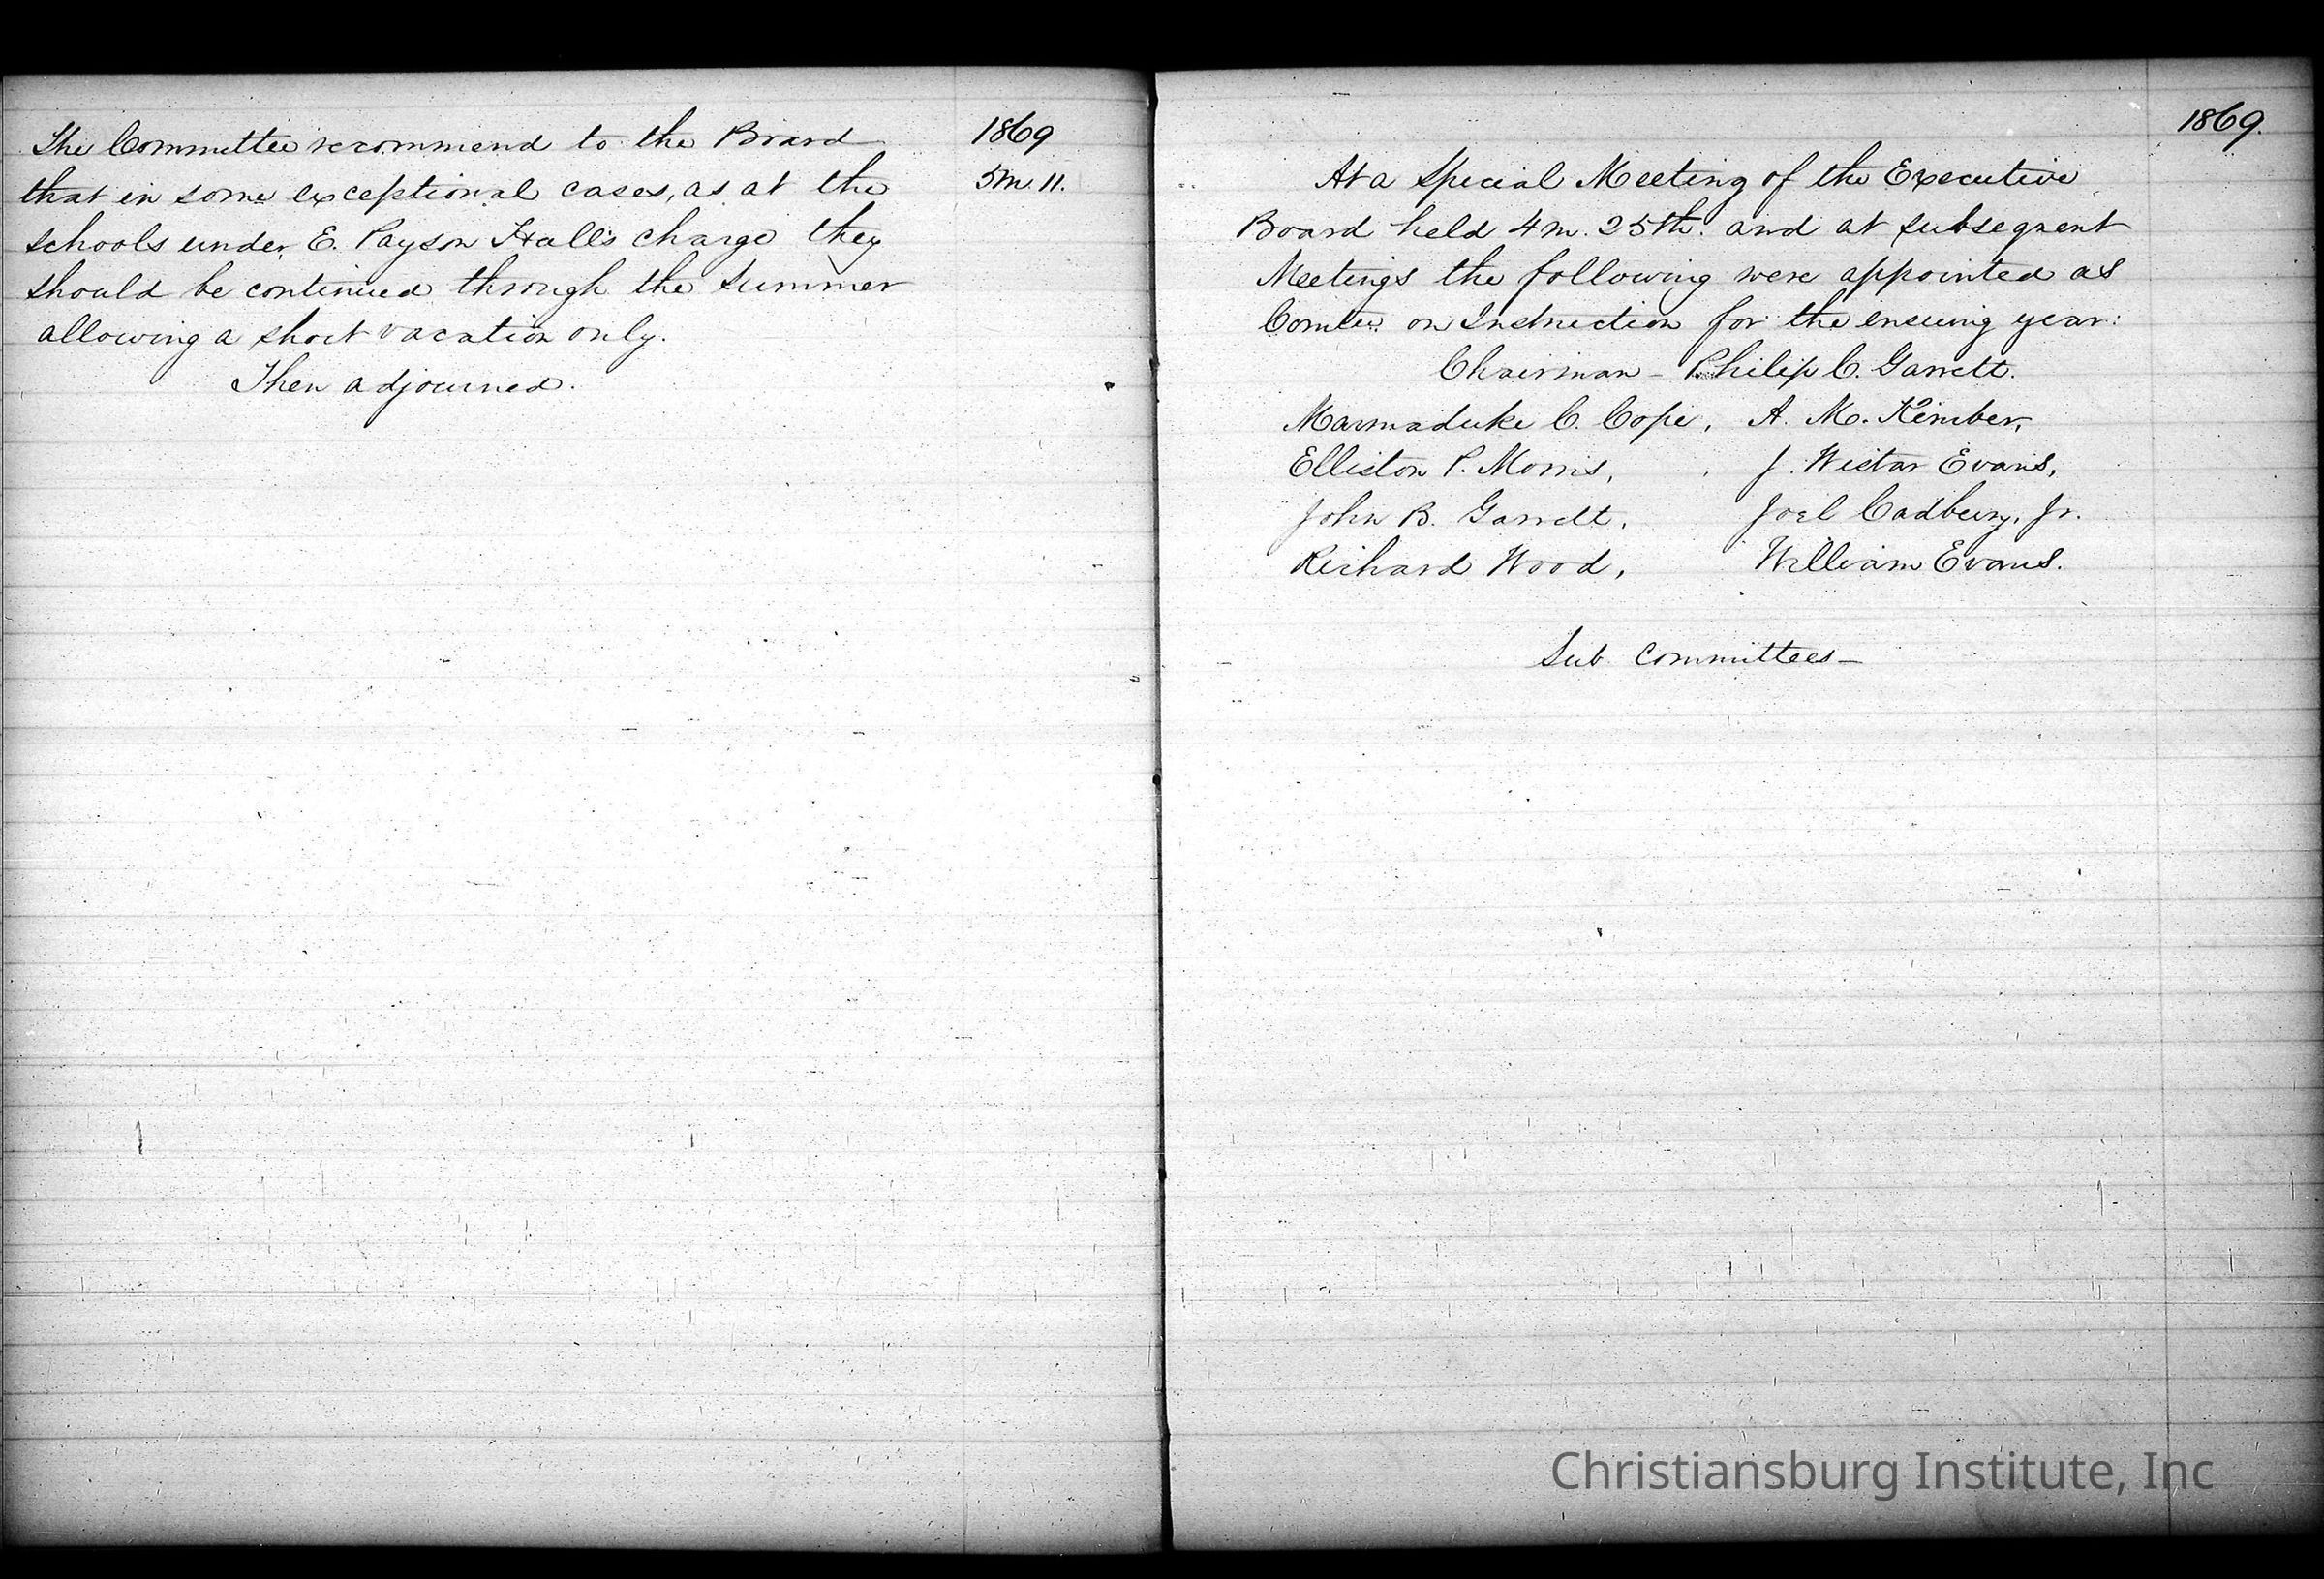 1869
The Committee recommend to the Board
5m. 11.
that in some exceptional cases, as at the
schools under E. Payson Hall's charge they
should be continued through the summer
allowing a short vacation only.
Then adjourned.
1869.
At a Special Meeting of the Executive
Board held 4m. 25th. and at subsequent
Meetings the following were appointed as
Comtee. on Instruction for the ensuing year:
Chairman - Philip C. Garrett.
Marmaduke C. Cope, A. M. Kimber,
Elliston P. Morris, J. Wistar Evans,
John B. Garrett, Joel Cadbury, Jr.
Richard Wood, William Evans.
Sub Committees -
Christiansburg Institute, Inc